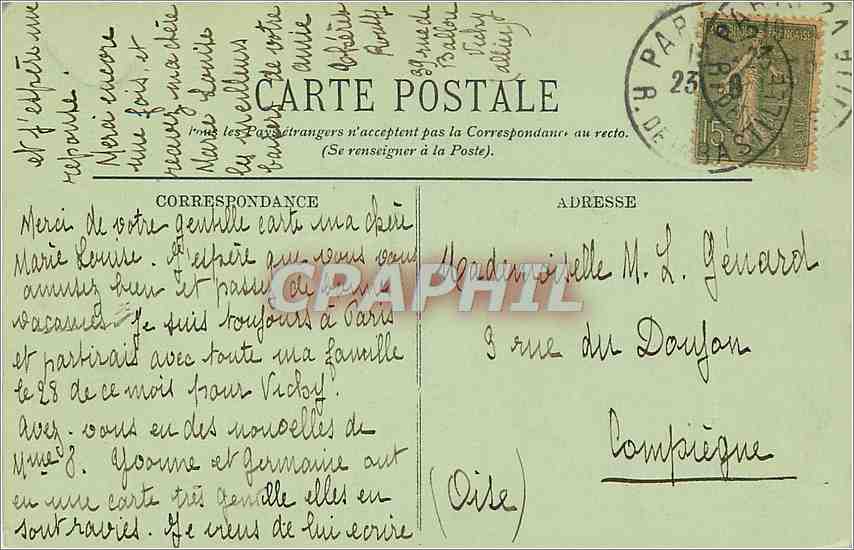 CARTE POSTALE
Tous les Pays étrangers n'acceptent pas la Correspondance au recto.
(Se renseigner à la Poste).
CORRESPONDANCE
Merci de votre gentille carte ma chère
Marie Louise. J'espère que vous vous
amusez bien et passez de bonnes
vacances. Je suis toujours à Paris
et partirais avec toute ma famille
le 28 de ce mois pour Vichy.
Avez-vous eu des nouvelles de
Mme J. Yvonne et Germaine ont
eu une carte très gentille elles en
sont ravies. Je viens de lui écrire
et j'espère une
réponse.
Merci encore
une fois et
recevez ma chère
Marie Louise
les meilleurs
baisers de votre
amie
39 rue de
Ballore
Vichy
Allier
ADRESSE
Mademoiselle M. L. Génard
3 rue du Donjon
Compiègne
(Oise)
PARIS
23
R. DE LA BASTILLE
FRANÇAISE
15c
CPAPHIL